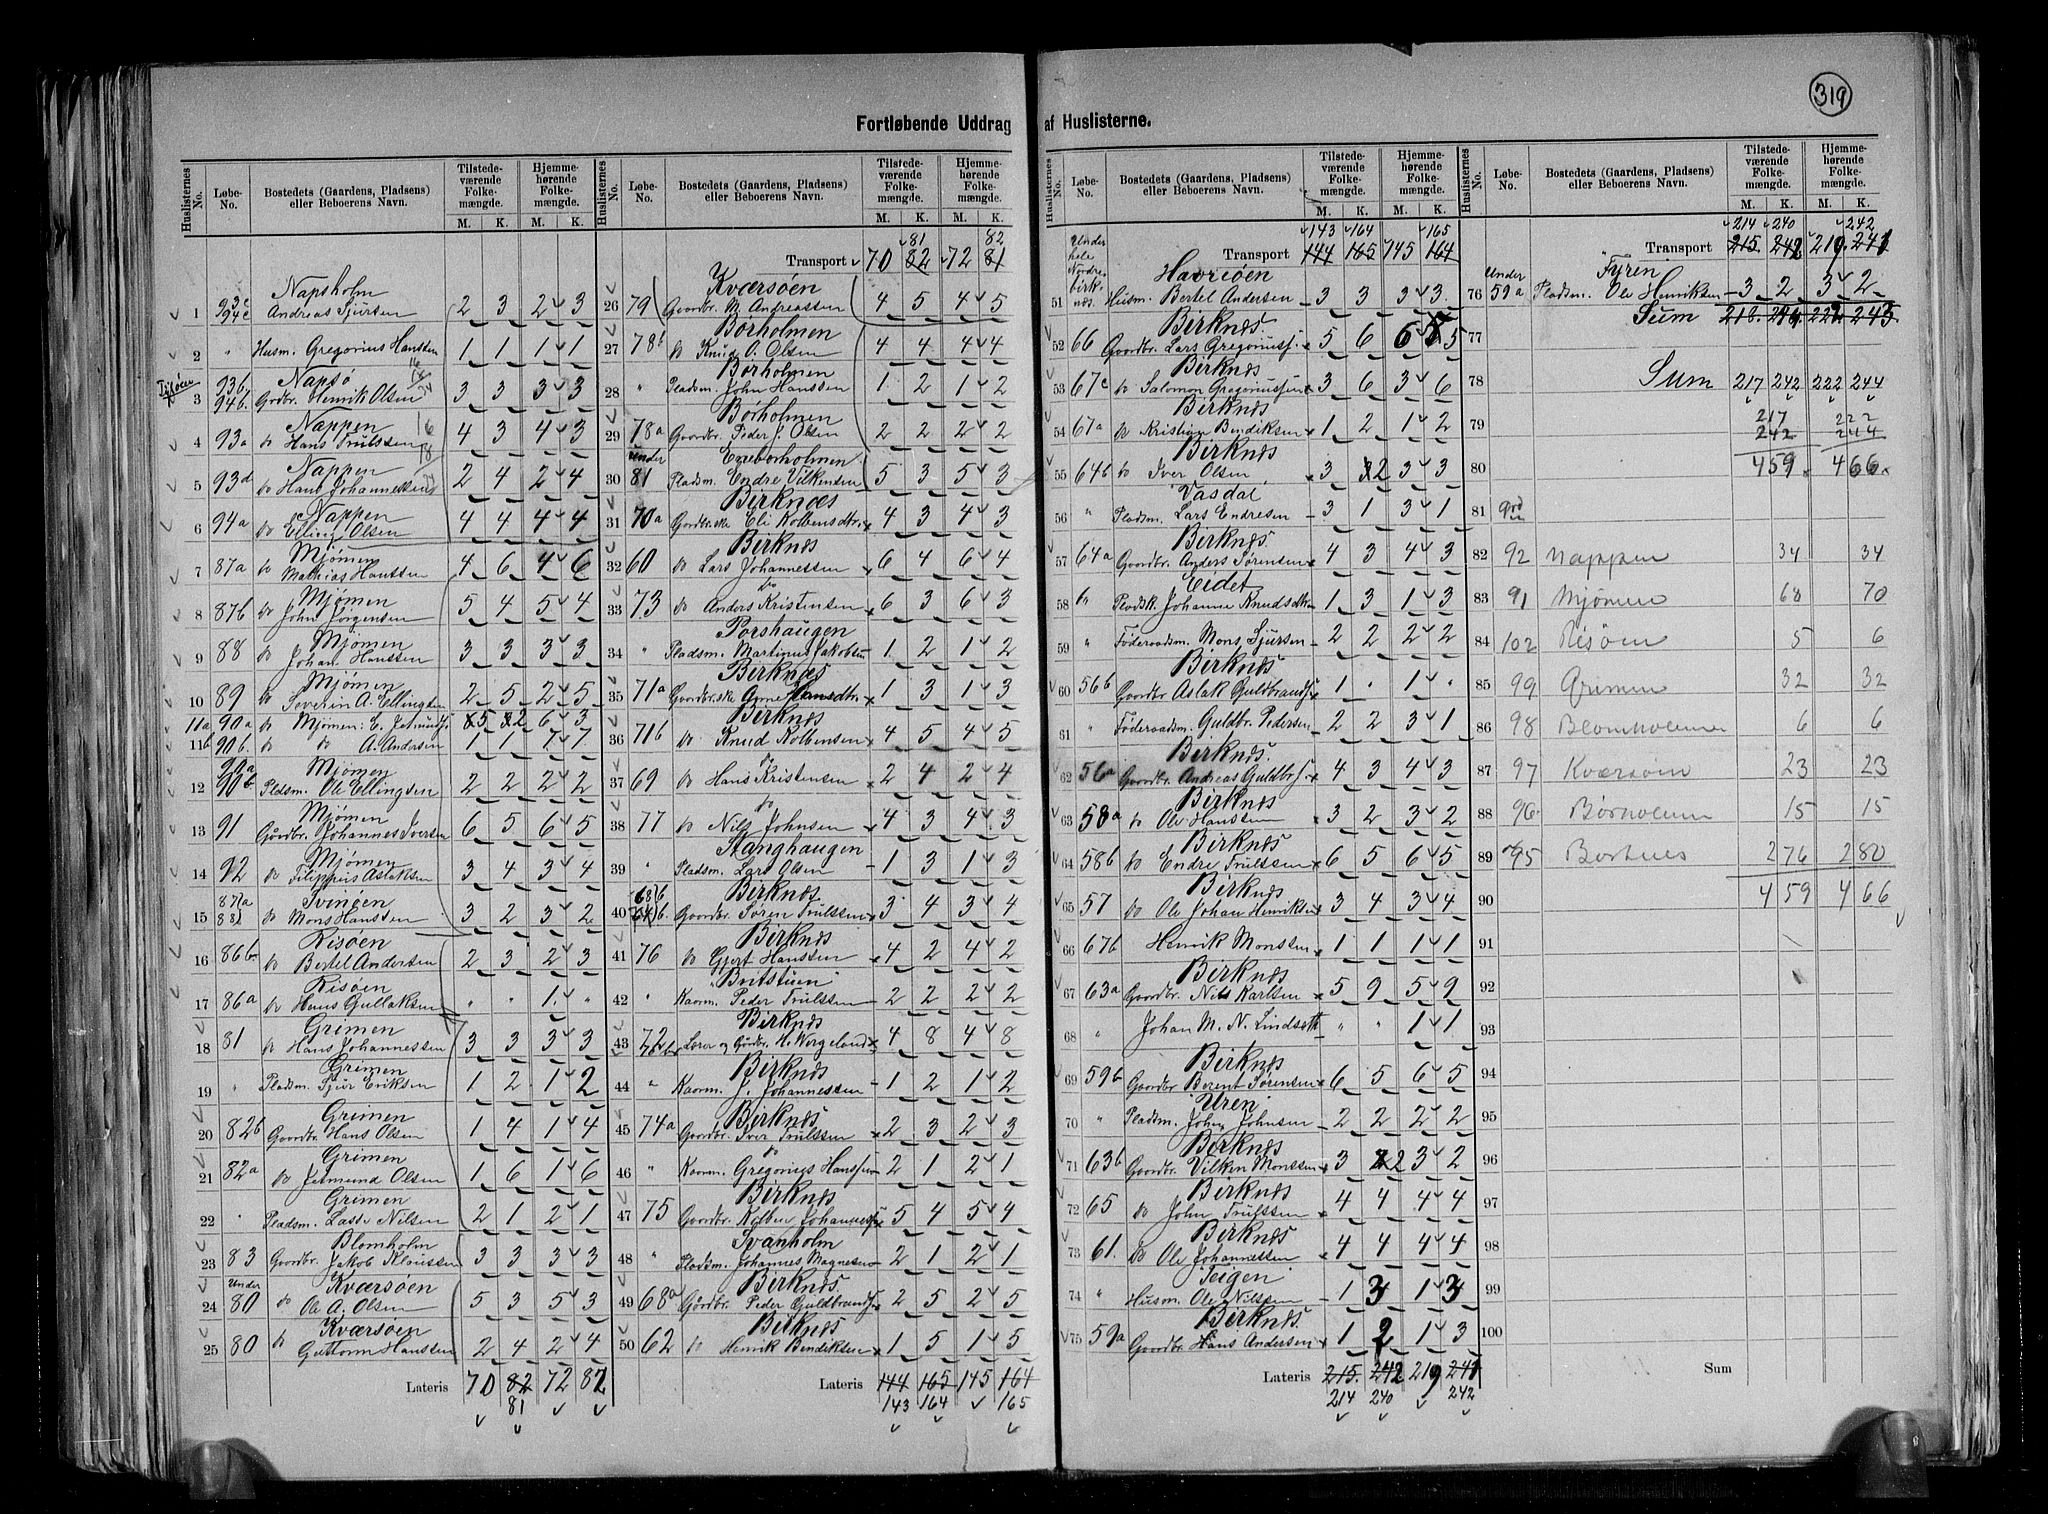 319
Fortløbende Uddrag af Huslisterne.
Huslisternes No. Løbe-No. Bostedets (Gaardens, Pladsens) eller Beboerens Navn. Tilstedeværende Folkemængde. M. K. Hjemmehørende Folkemængde. M. K.
1 93c 94c Napsholm
Andreas Sjursen 2 3 2 3
2 " Husm. Gregorius Hanssen 1 1 1 1
3 93b. 94b. Napsø
Grdbr. Henrik Olsen 3 3 3 3
4 93a Nappen
do Hans Trulssen 4 3 4 3
5 93d Nappen
do Hans Johannessen 2 4 2 4
6 94a Nappen
do Elling Olsen 4 4 4 4
7 87a Mjømen
do Mathias Hanssen 4 6 4 6
8 87b Mjømen
do John Jørgensen 5 4 5 4
9 88 Mjømen
do Johan Hanssen 3 3 3 3
10 89 Mjømen
do Severin A. Ellingsen 2 5 2 5
11a 90a do Mjømen: E. Jetmunds. 5 2 6 3
11b 90b. do do A. Andersen 1 1 1 1
12 90a 90b Mjømen
Pladsm. Ole Ellingsen 2 2 2 2
13 91 Mjømen
Gaardbr. Johannes Iversen 6 5 6 5
14 92 Mjømen
do Filippus Aslaksen 3 4 3 4
15 87a 88 Svinøen
do Mons Hanssen 3 2 3 2
16 86b Risøen
do Bertel Andersen 2 3 2 3
17 86a Risøen
do Hans Gullaksen " " 1 "
18 81 Grimen
do Hans Johannessen 3 3 3 3
19 " Grimen
Pladsm. Sjur Eriksen 1 2 1 2
20 82b Grimen
Gaardbr. Hans Olsen 1 4 1 4
21 82a Grimen
do Jetmund Olsen 1 6 1 6
22 " Grimen
Pladsm. Lasse Nilsen 2 1 2 1
23 83 Blomholm
Gaardbr. Jakob Klaussen 3 3 3 3
24 Under 80 Kværsøen
do Ole A. Olsen 5 3 5 3
25 80 Kværsøen
do Guttorm Hanssen 2 4 2 4
Lateris 70 82 72 82
81
Huslisternes No. Løbe-No. Bostedets (Gaardens, Pladsens) eller Beboerens Navn. Tilstedeværende Folkemængde. M. K. Hjemmehørende Folkemængde. M. K.
81 82
Transport 70 82 72 81
26 79 Kværsøen
Gaardbr. M. Andreassen 4 5 4 5
27 78b Borholmen
do Knud O. Olsen 4 4 4 4
28 " Borholmen
Pladsm. John Hanssen 1 2 1 2
29 78a Borholmen
Gaardbr. Peder J. Olsen 2 2 2 2
30 Under 81 Eneborholmen
Pladsm. Endre Vilkensen 5 3 5 3
31 70a Birknæs
Gardbr.ske Eli Kolbensdtr. 4 3 4 3
32 60 Birknæs
do Lars Johannessen 6 4 6 4
33 73 do
do Anders Kristensen 6 3 6 3
34 " Porshaugen
Pladsm. Martinus Jakobsen 1 2 1 2
35 71a Birknæs
Gaardbr.ske Anne Hansdtr. 1 3 1 3
36 71b Birknæs
do Knud Kolbensen 4 5 4 5
37 69 do
do Hans Kristensen 2 4 2 4
38 77 do
do Nils Johnsen 4 3 4 3
39 " Stanghaugen
Pladsm. Lars Olsen 1 3 1 3
40 68b Birknæs
Gaardbr. Søren Trulssen 3 4 3 4
41 76 Birknæs
do Gjert Hanssen 4 2 4 2
42 " Bortstuen
Kaarm. Peder Trulssen 2 2 2 2
43 72 Birknæs
Lærer og Gaardbr. H. Wergeland 4 8 4 8
44 " Birknæs
Kaarm. J. Johannessen 1 2 1 2
45 74a Birknæs
Gaardbr. Iver Trulssen 2 3 2 3
46 " do
Kaarm. Gregorius Hanssen 2 1 2 1
47 75 Birknæs
Gaardbr. Kolben Johanness. 5 4 5 4
48 " Svanholm
Pladsm. Johannes Magnesen 2 1 2 1
49 68a Birknæs.
Gaardbr. Peder Guldbrands. 2 5 2 5
50 62 Birknæs
do Henrik Bendiksen 1 5 1 5
Lateris 144 165 145 164
143 164 165
Huslisternes No. Løbe-No. Bostedets (Gaardens, Pladsens) eller Beboerens Navn. Tilstedeværende Folkemængde. M. K. Hjemmehørende Folkemængde. M. K.
143 164 165
Transport 144 165 145 164
51 Under hele Nordre birknæs. Havriøen
Husm. Bertel Andersen 3 3 3 3
52 66 Birknæs.
Gaardbr. Lars Gregoriuss. 5 6 6 5
53 67c Birknæs
do Salomon Gregoriussen 3 6 3 6
54 67a Birknæs
do Kristian Bendiksen 1 2 1 2
55 64b Birknæs
do Iver Olsen 3 2 3 3
56 " Vasdal
Pladsm. Lars Endresen 3 1 3 1
57 64a Birknæs.
Gaardbr. Anders Sørensen 4 3 4 3
58 " Eidet
Pladsk. Johanne Knudsdtr. 1 3 1 3
59 " Føderaadsm. Mons Sjursen 2 2 2 2
60 56b Birknæs
Gaardbr Aslak Guldbrands. 1 " 1 "
61 " Føderaadsm. Guldbr. Pedersen 2 2 3 1
62 56a Birknæs.
Gaardbr. Andreas Guldbrs. 4 3 4 3
63 58a Birknæs
do Ole Hanssen 3 2 3 2
64 58b Birknæs
do Endre Trulssen 6 5 6 5
65 57 Birknæs
do Ole Johan Henriksen 3 4 3 4
66 67b Henrik Monssen 1 1 1 1
67 63a Birknæs
Gaardbr. Nils Karlsen 5 9 5 9
68 " Johan M. N. Lindseth " " 1 1
69 59b Birknæs
Gaardbr Berent Sørensen 6 5 6 5
70 " Uren
Pladsm. John Johnsen 2 2 2 2
71 63b Birknæs
Gaardbr. Vilken Monssen 3 2 3 2
72 65 Birknæs
do John Trulssen 4 4 4 4
73 61. Birknæs
do Ole Johannessen 4 4 4 4
74 " Teigen
Husm. Ole Nilssen 1 3 1 3
75 59a Birknæs.
Gaardbr Hans Andersen 1 2 1 3
Lateris 215. 242 219 241
214 240 242
Huslisternes No. Løbe-No. Bostedets (Gaardens, Pladsens) eller Beboerens Navn. Tilstedeværende Folkemængde. M. K. Hjemmehørende Folkemængde. M. K.
214 240 242
Transport 215. 242 219 241
76 Under 59a Fyren
Pladsm. Ole Henriksen 3 2 3 2
77 Sum 218. 244. 222 243.
78 Sum 217 242 222 244
79 217 222
242 244
80 459 466
81
82 92 Nappen 34 34
83 91 Mjømen 68 70
84 102 Risøen 5 6
85 99 Grimen 32 32
86 98 Blomholmen 6 6
87 97 Kværsøen 23 23
88 96 Børholmen 15 15
89 95 276 280
90 459 466
91
92
93
94
95
96
97
98
99
100
Sum